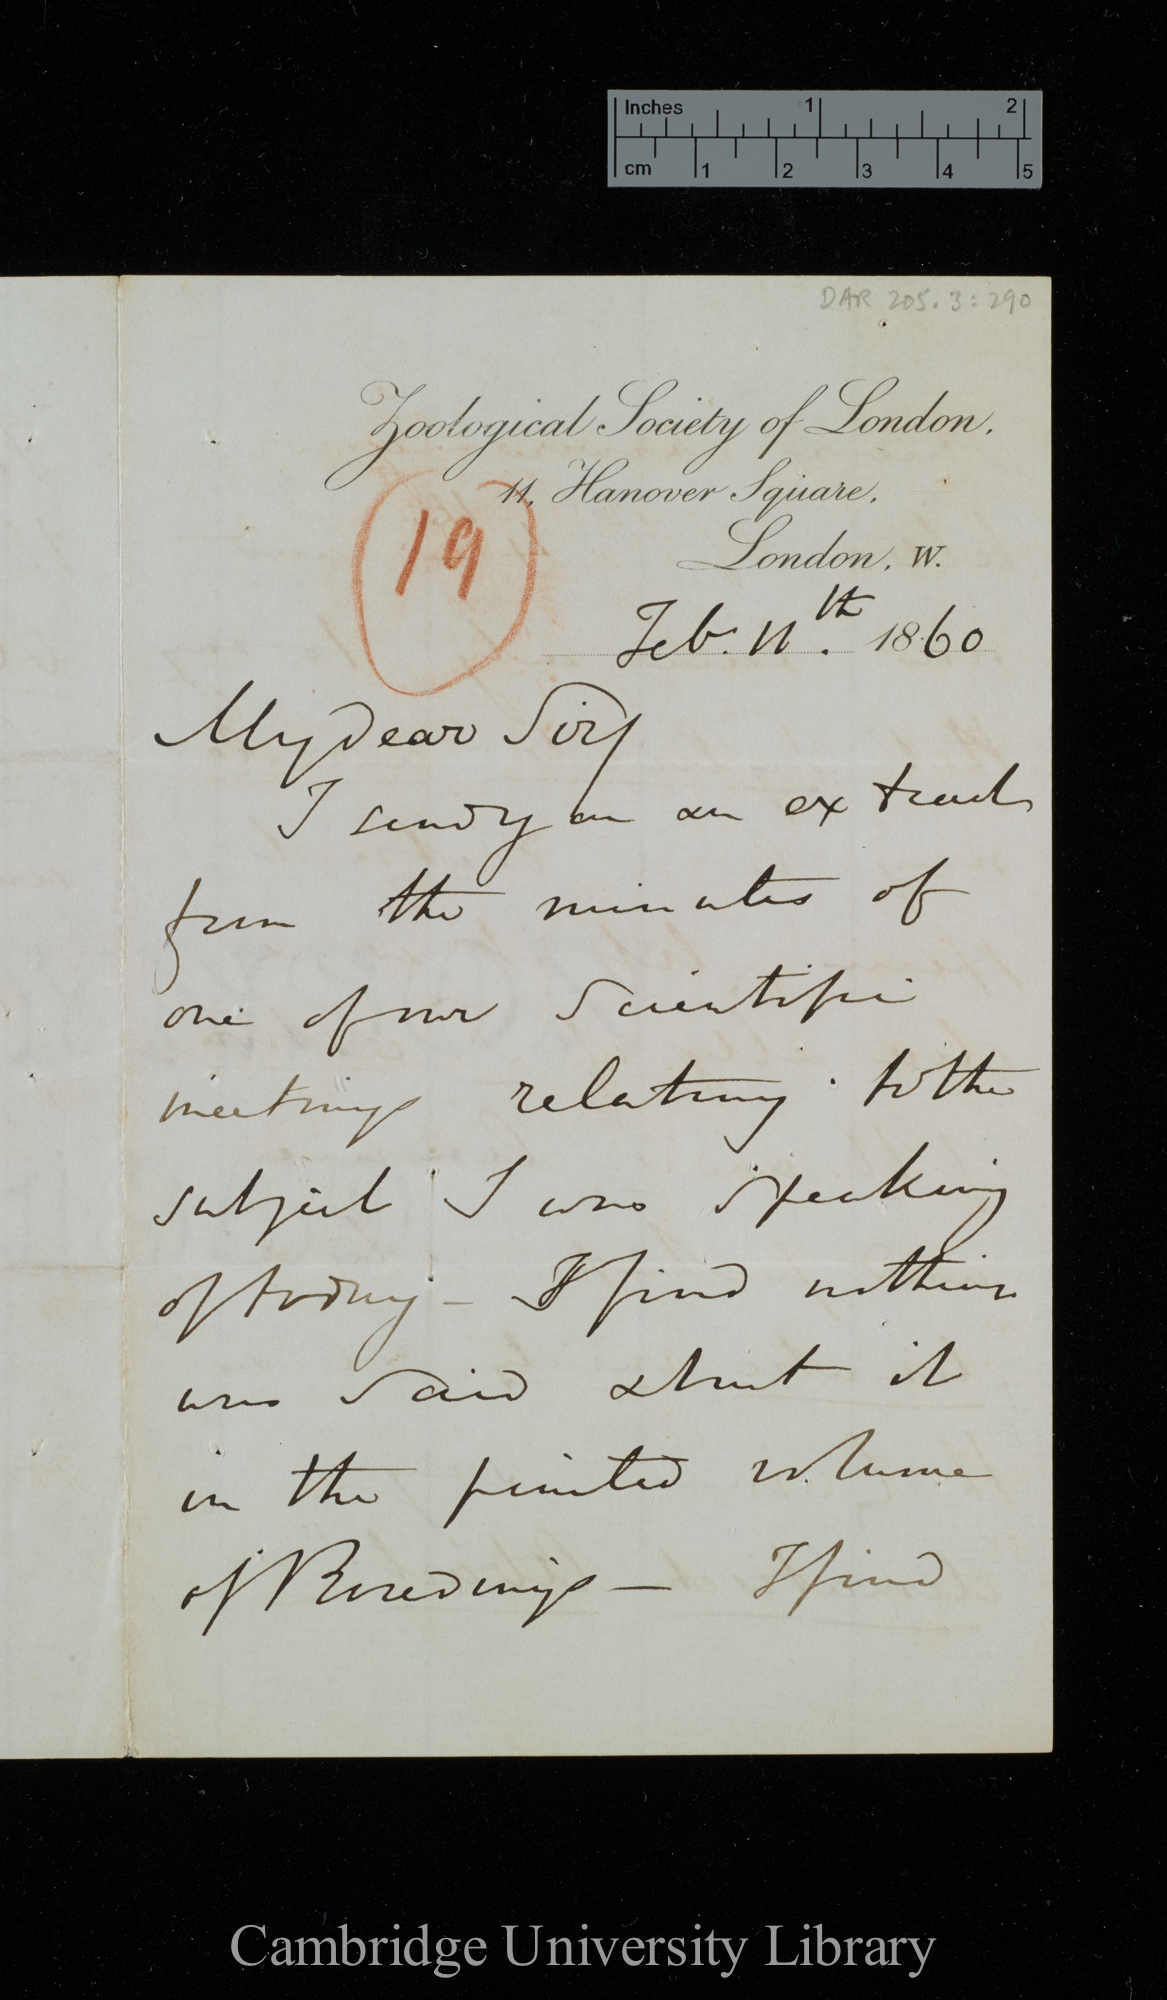 Inches 1 2
cm 1 2 3 4 5
DAR 205.3:290
Zoological Society of London.
11, Hanover Square,
London, W.
19
Feb. 11th. 1860
My dear Sir
I send you an extract
from the minutes of
one of our Scientific
meetings relating to the
subject I was speaking
of today – I find nothing
was said about it
in the printed volume
of Proceedings — I find
Cambridge University Library